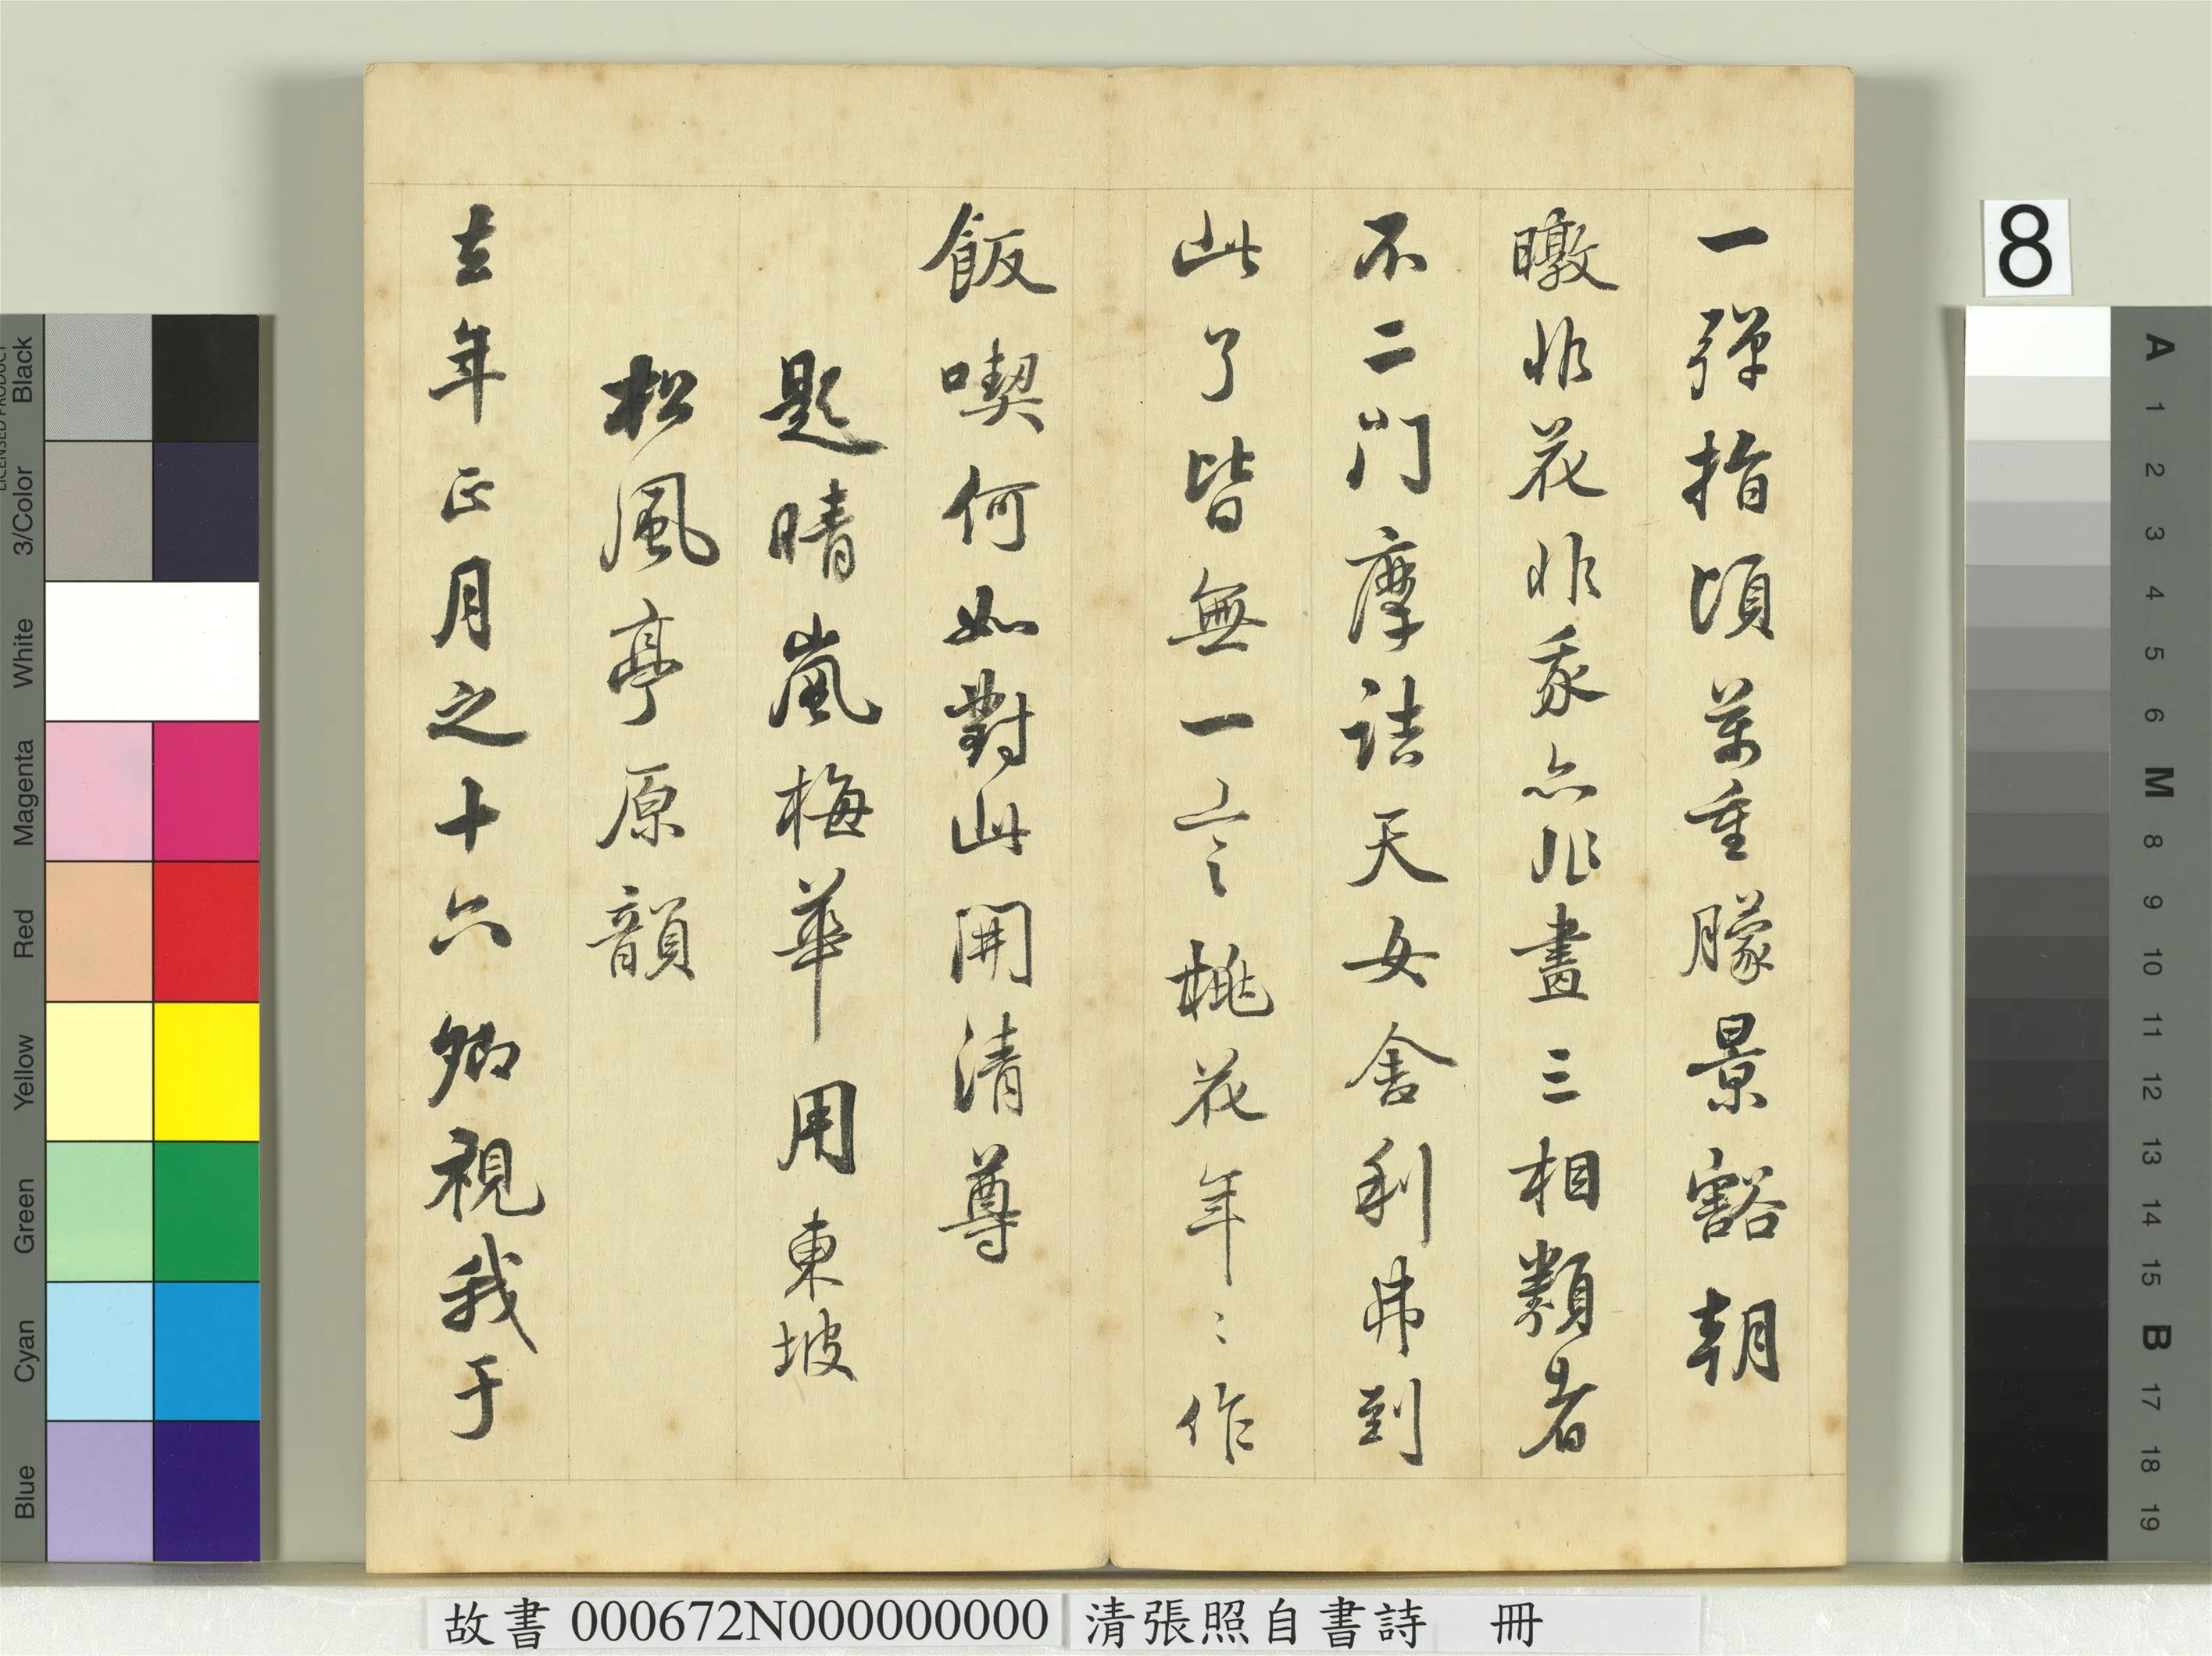 一彈指頃萬重朦景豁朝
暾非花非我亦非畫三相類者
不二門摩詰天女舍利弗到
此了皆無一言桃花年〻作
飯喫何如對此開清尊
題晴嵐梅華用東坡
松風亭原韻
去年正月之十六卿視我于
8
A 1 2 3 4 5 6 M 8 9 10 11 12 13 14 15 B 17 18 19
Black
3/Color
White
Magenta
Red
Yellow
Green
Cyan
Blue
故書 000672N000000000 清張照自書詩 冊